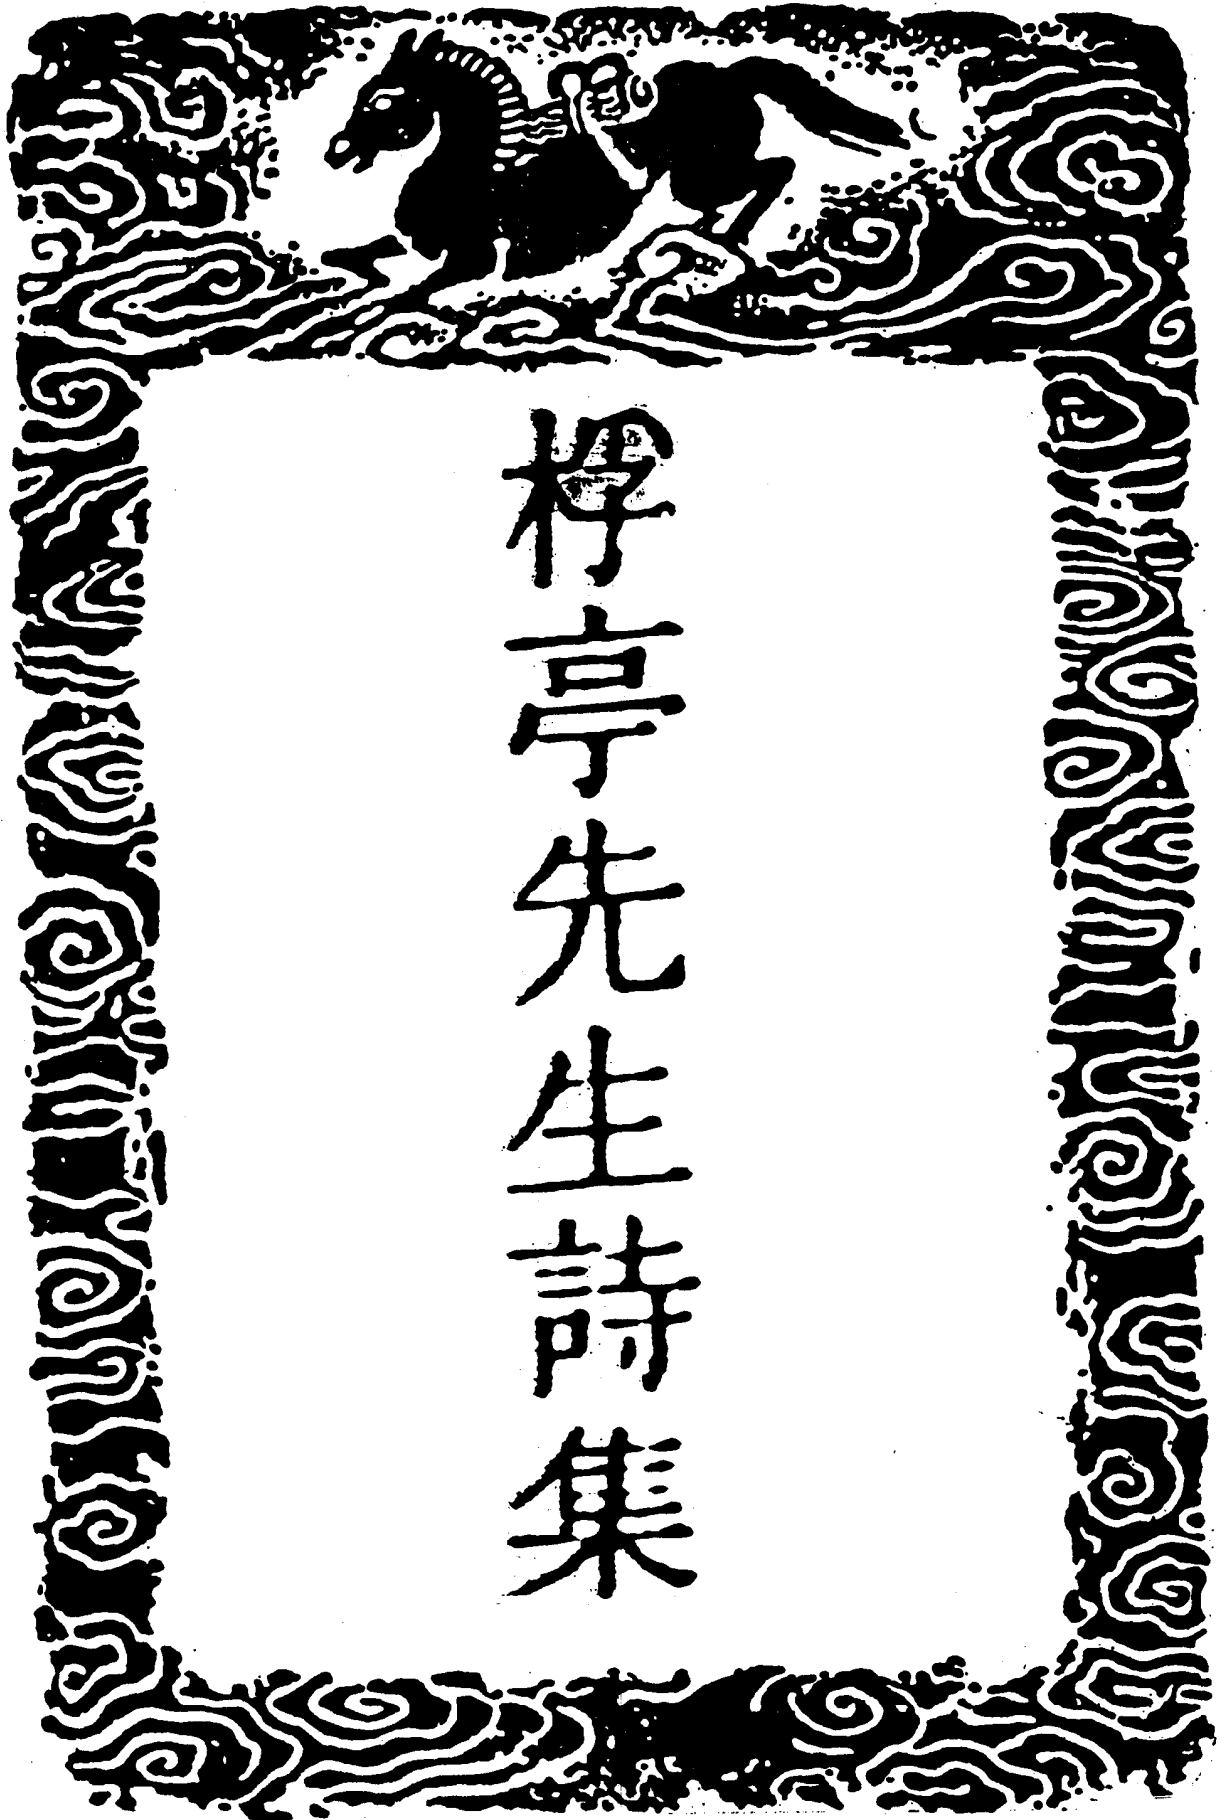 桴亭先生詩集